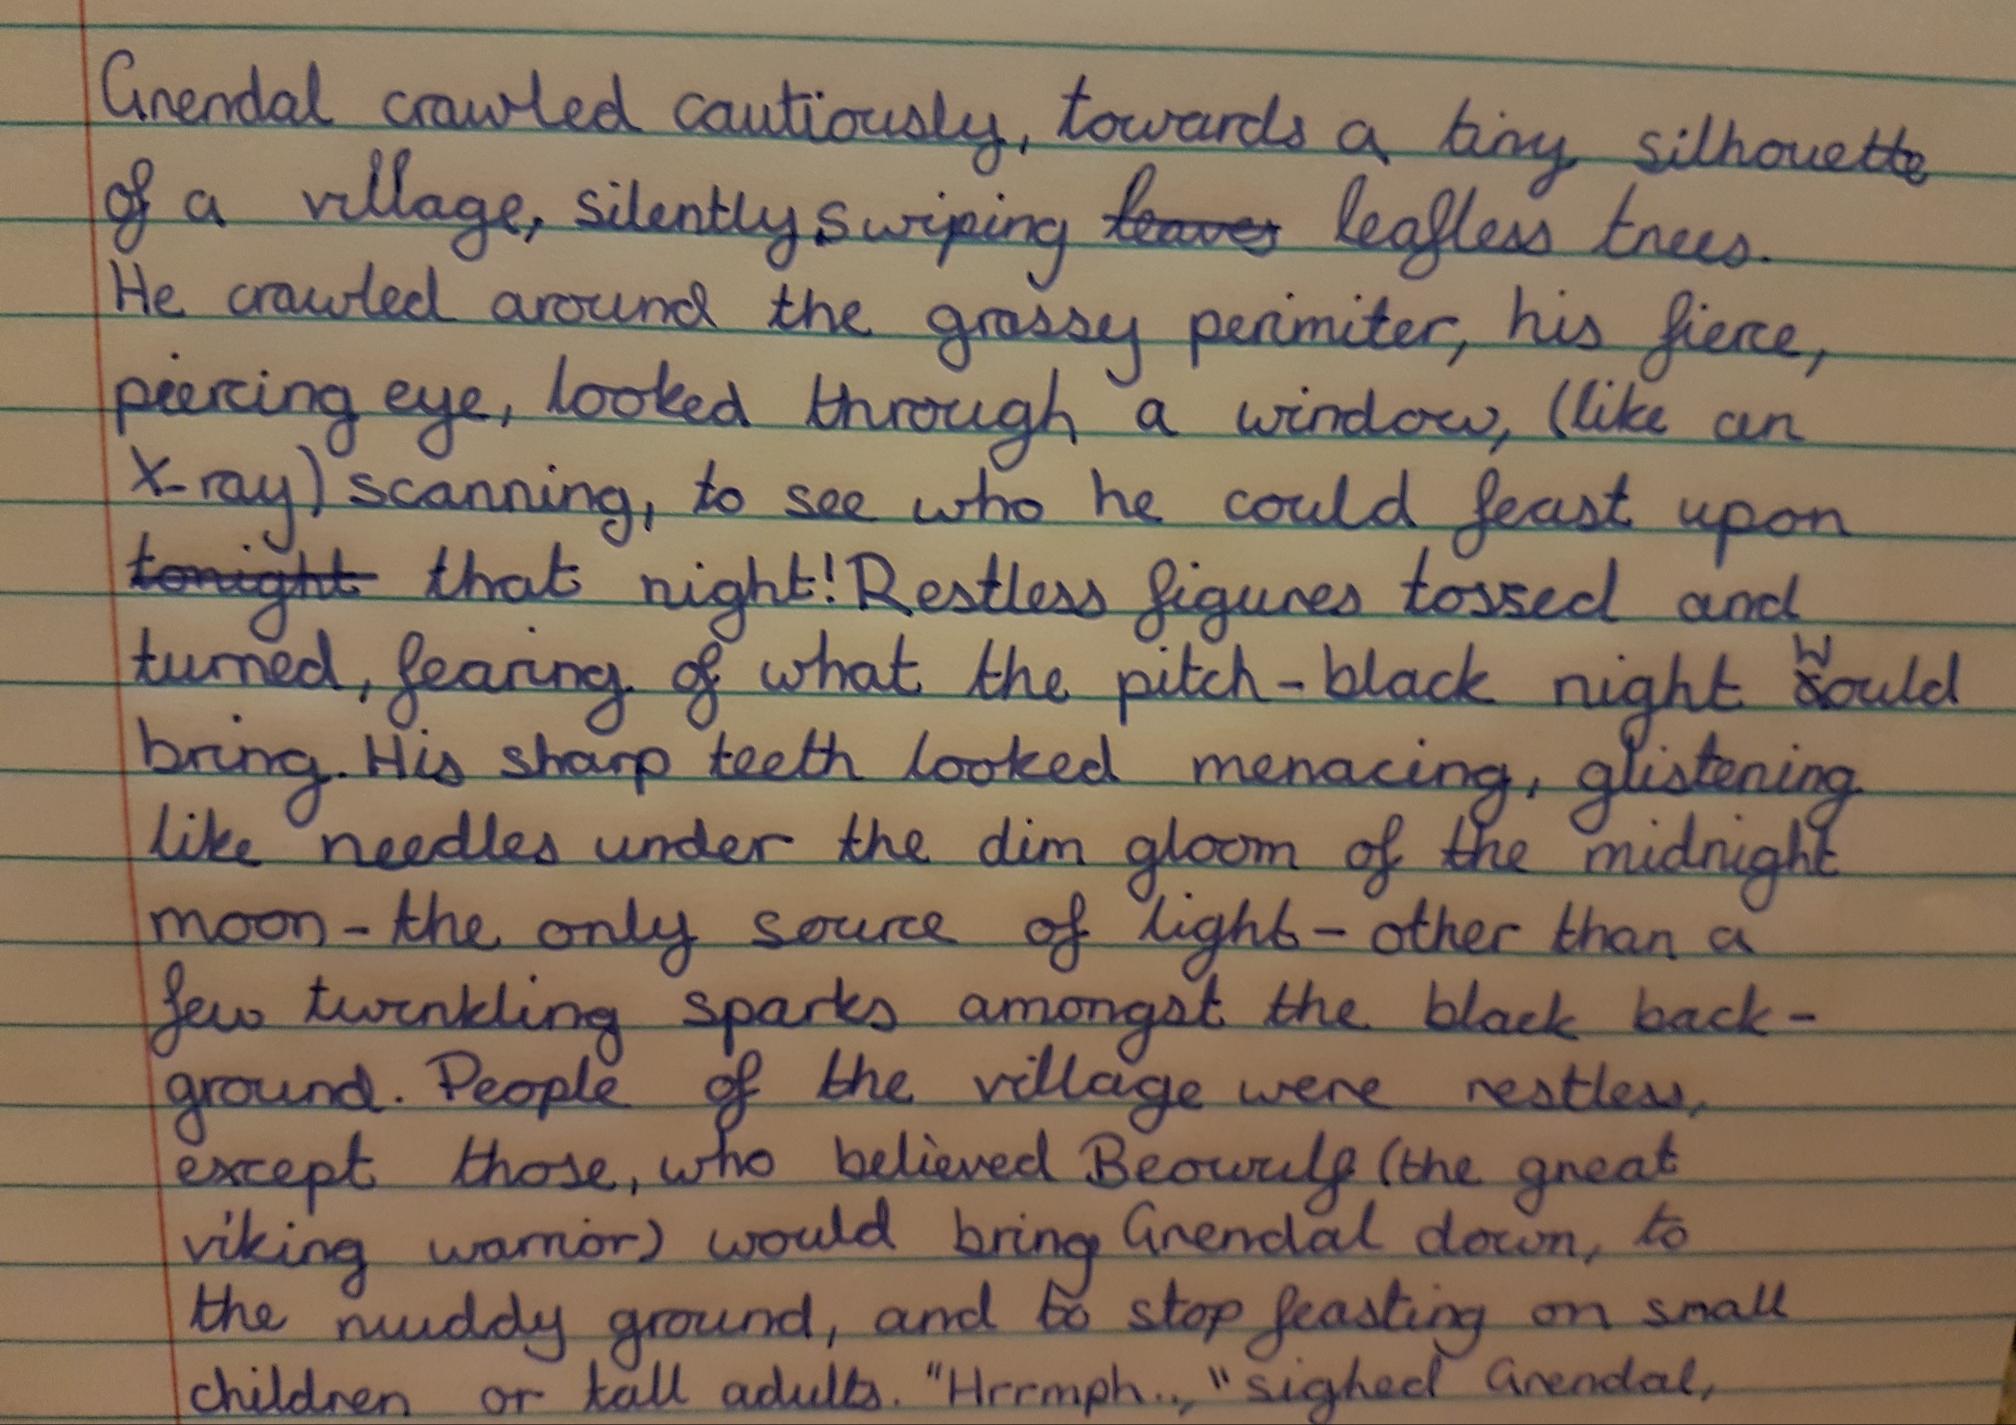 Grendal crawled cautiously, towards a tiny silhouette
of a village, silently swiping leaves leafless trees.
He crawled around the grassy perimiter, his fierce,
piercing eye, looked through a window, (like an
X-ray) scanning, to see who he could feast upon
tonight that night! Restless figures tossed and
turned, fearing of what the pitch-black night would
bring. His sharp teeth looked menacing, glistening
like needles under the dim gloom of the midnight
moon - the only source of light - other than a
few twinkling sparks amongst the black back-
ground. People of the village were restless,
except those, who believed Beowulf (the great
viking warrior) would bring Grendal down, to
the muddy ground, and to stop feasting on small
children or tall adults. "Hrrmph..," sighed Grendal,